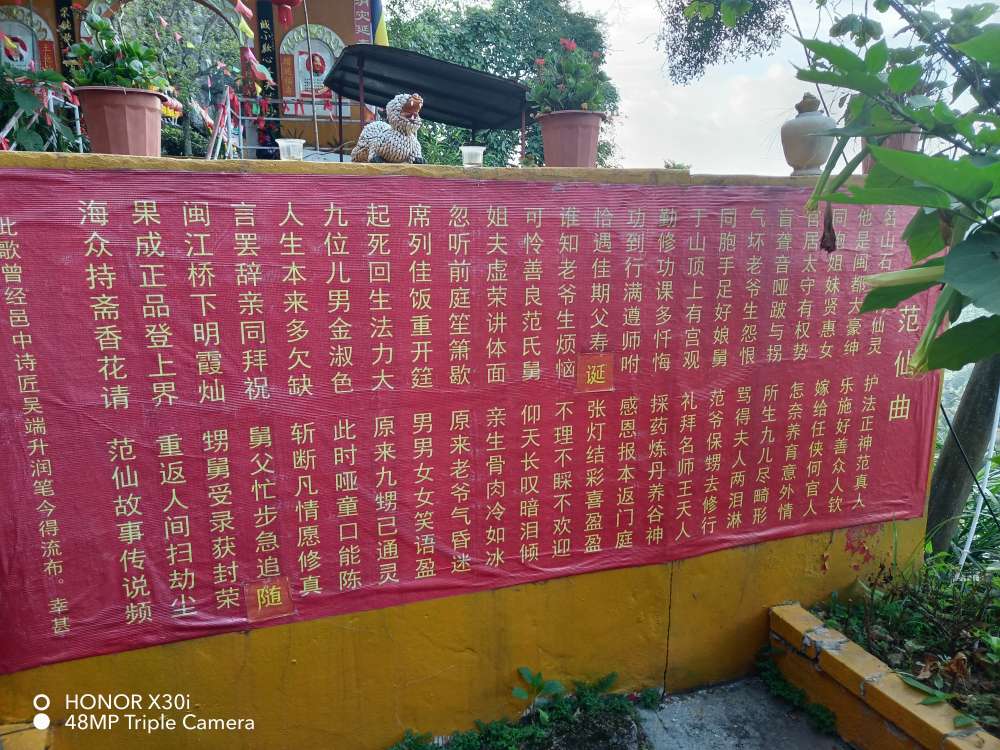 范仙曲
名山石 仙灵 护法正神范真人
他是闽都大豪绅 乐施好善众人钦
同胞姐妹贤惠女 嫁给任侠何官人
官居太守有权势 怎奈养育意外情
盲聋音哑跛与拐 所生九儿尽畸形
气坏老爷生怨恨 骂得夫人两泪淋
同胞手足好娘舅 范爷保甥去修行
于山顶上有宫观 礼拜名师王天人
勤修功课多忏悔 採药炼丹养谷神
功到行满遵师咐 感恩报本返门庭
恰遇佳期父寿诞 张灯结彩喜盈盈
谁知老爷生烦恼 不理不睬不欢迎
可怜善良范氏舅 仰天长叹暗泪倾
姐夫虚荣讲体面 亲生骨肉冷如冰
忽听前庭笙箫歇 原来老爷气昏迷
席列佳饭重开筳 男男女女笑语盈
起死回生法力大 原来九甥已通灵
九位儿男金淑色 此时哑童口能陈
人生本来多欠缺 斩断凡情愿修真
言罢辞亲同拜祝 舅父忙步急追随
闽江桥下明霞灿 甥舅受录获封荣
果成正品登上界 重返人间扫劫尘
海众持斋香花请 范仙故事传说频
此歌曾经邑中诗匠吴端升润笔今得流布。幸甚
HONOR X30i
48MP Triple Camera